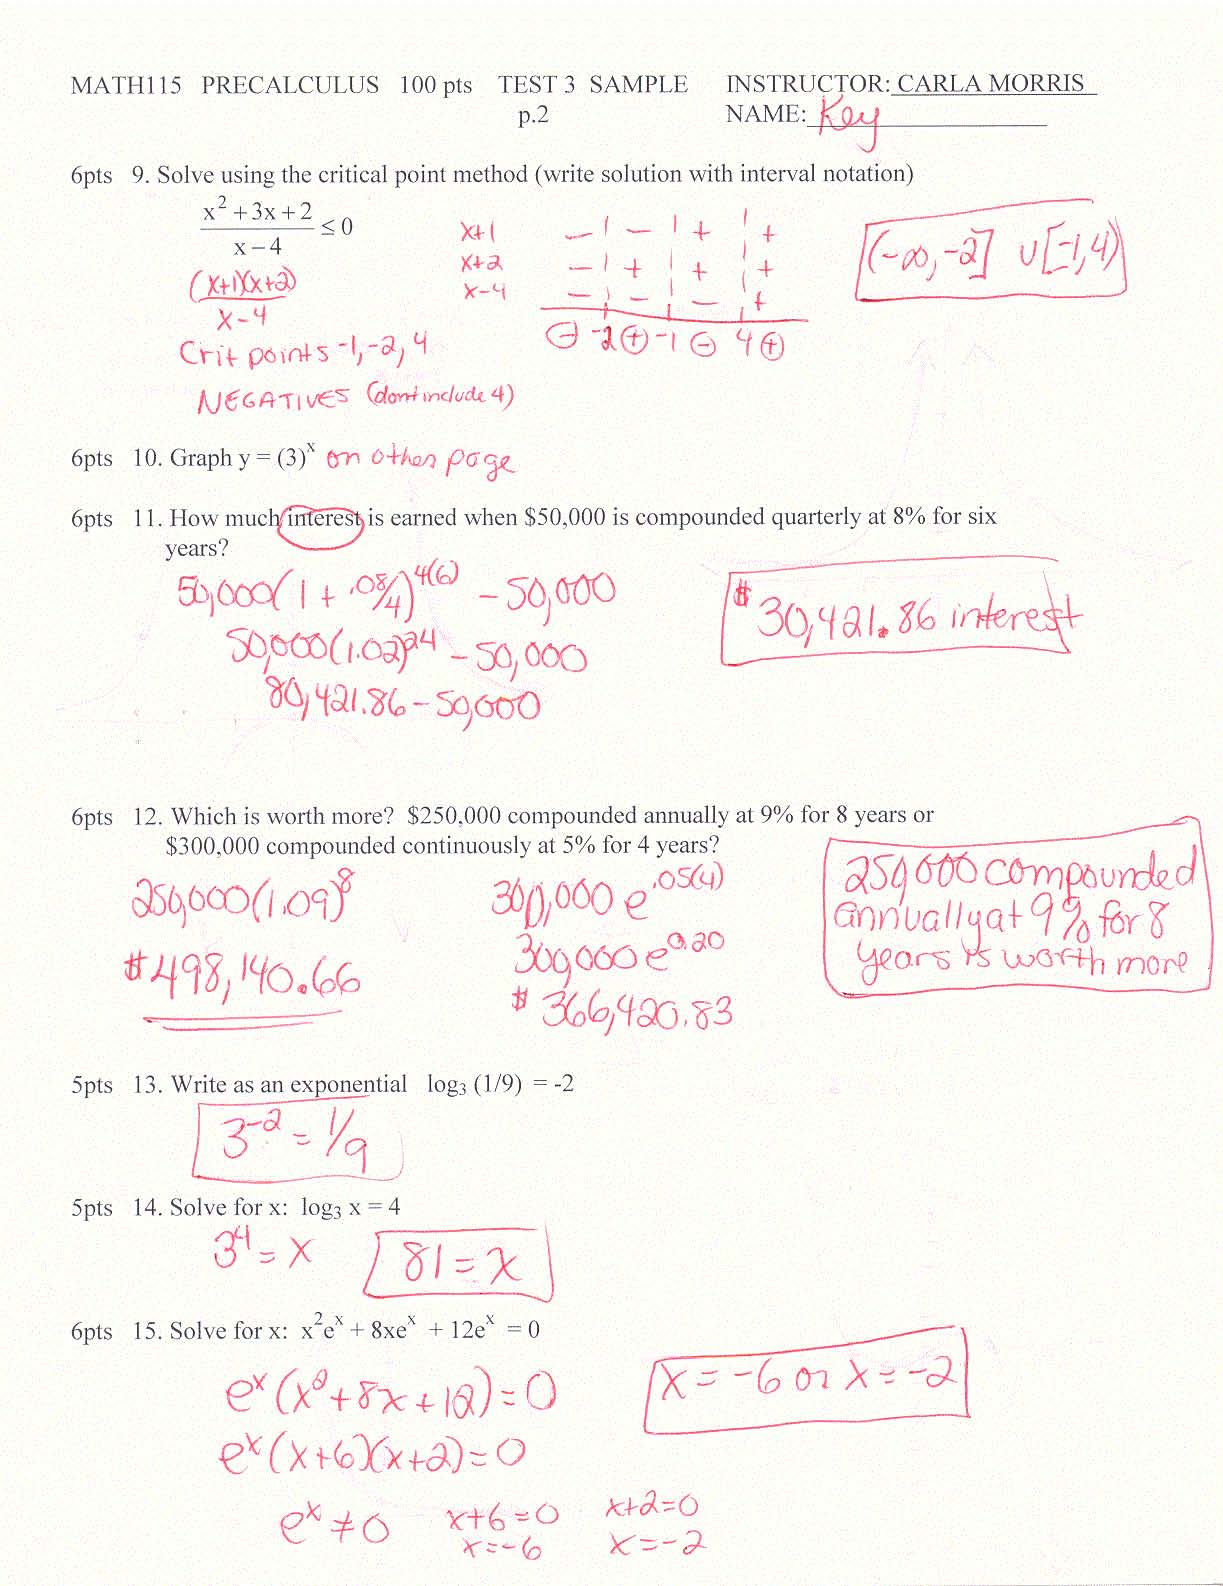 MATH115 PRECALCULUS 100 pts TEST 3 SAMPLE INSTRUCTOR: CARLA MORRIS
p.2 NAME: Key
6pts 9. Solve using the critical point method (write solution with interval notation)
x² + 3x + 2 / x − 4 ≤ 0
(x+1)(x+2) / x−4
Crit points -1, -2, 4
NEGATIVES (dont include 4)
x+1 − | − | + | +
x+2 − | + | + | +
x−4 − | − | − | +
⊖ -2 ⊕ -1 ⊖ 4 ⊕
(-∞, -2] ∪ [-1, 4)
6pts 10. Graph y = (3)ˣ on other page
6pts 11. How much interest is earned when $50,000 is compounded quarterly at 8% for six
years?
50,000(1 + .08/4)^4(6) − 50,000
50,000(1.02)^24 − 50,000
80,421.86 − 50,000
$30,421.86 interest
6pts 12. Which is worth more? $250,000 compounded annually at 9% for 8 years or
$300,000 compounded continuously at 5% for 4 years?
250,000(1.09)^8
$498,140.66
300,000 e^.05(4)
300,000 e^0.20
$ 366,420.83
250,000 compounded
annually at 9% for 8
years is worth more
5pts 13. Write as an exponential log₃ (1/9) = -2
3^-2 = 1/9
5pts 14. Solve for x: log₃ x = 4
3^4 = x 81 = x
6pts 15. Solve for x: x²eˣ + 8xeˣ + 12eˣ = 0
eˣ(x²+8x+12)=0
eˣ(x+6)(x+2)=0
eˣ ≠ 0 x+6=0 x+2=0
x=-6 x=-2
x = -6 or x = -2